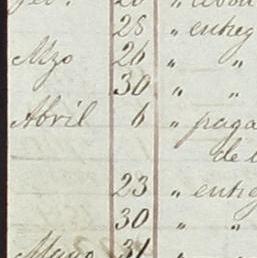 25 " entreg
Mzo 26 " "
30 " "
Abril 6 " paga
de l
23 " entreg
30 " "
Mayo 31 " "